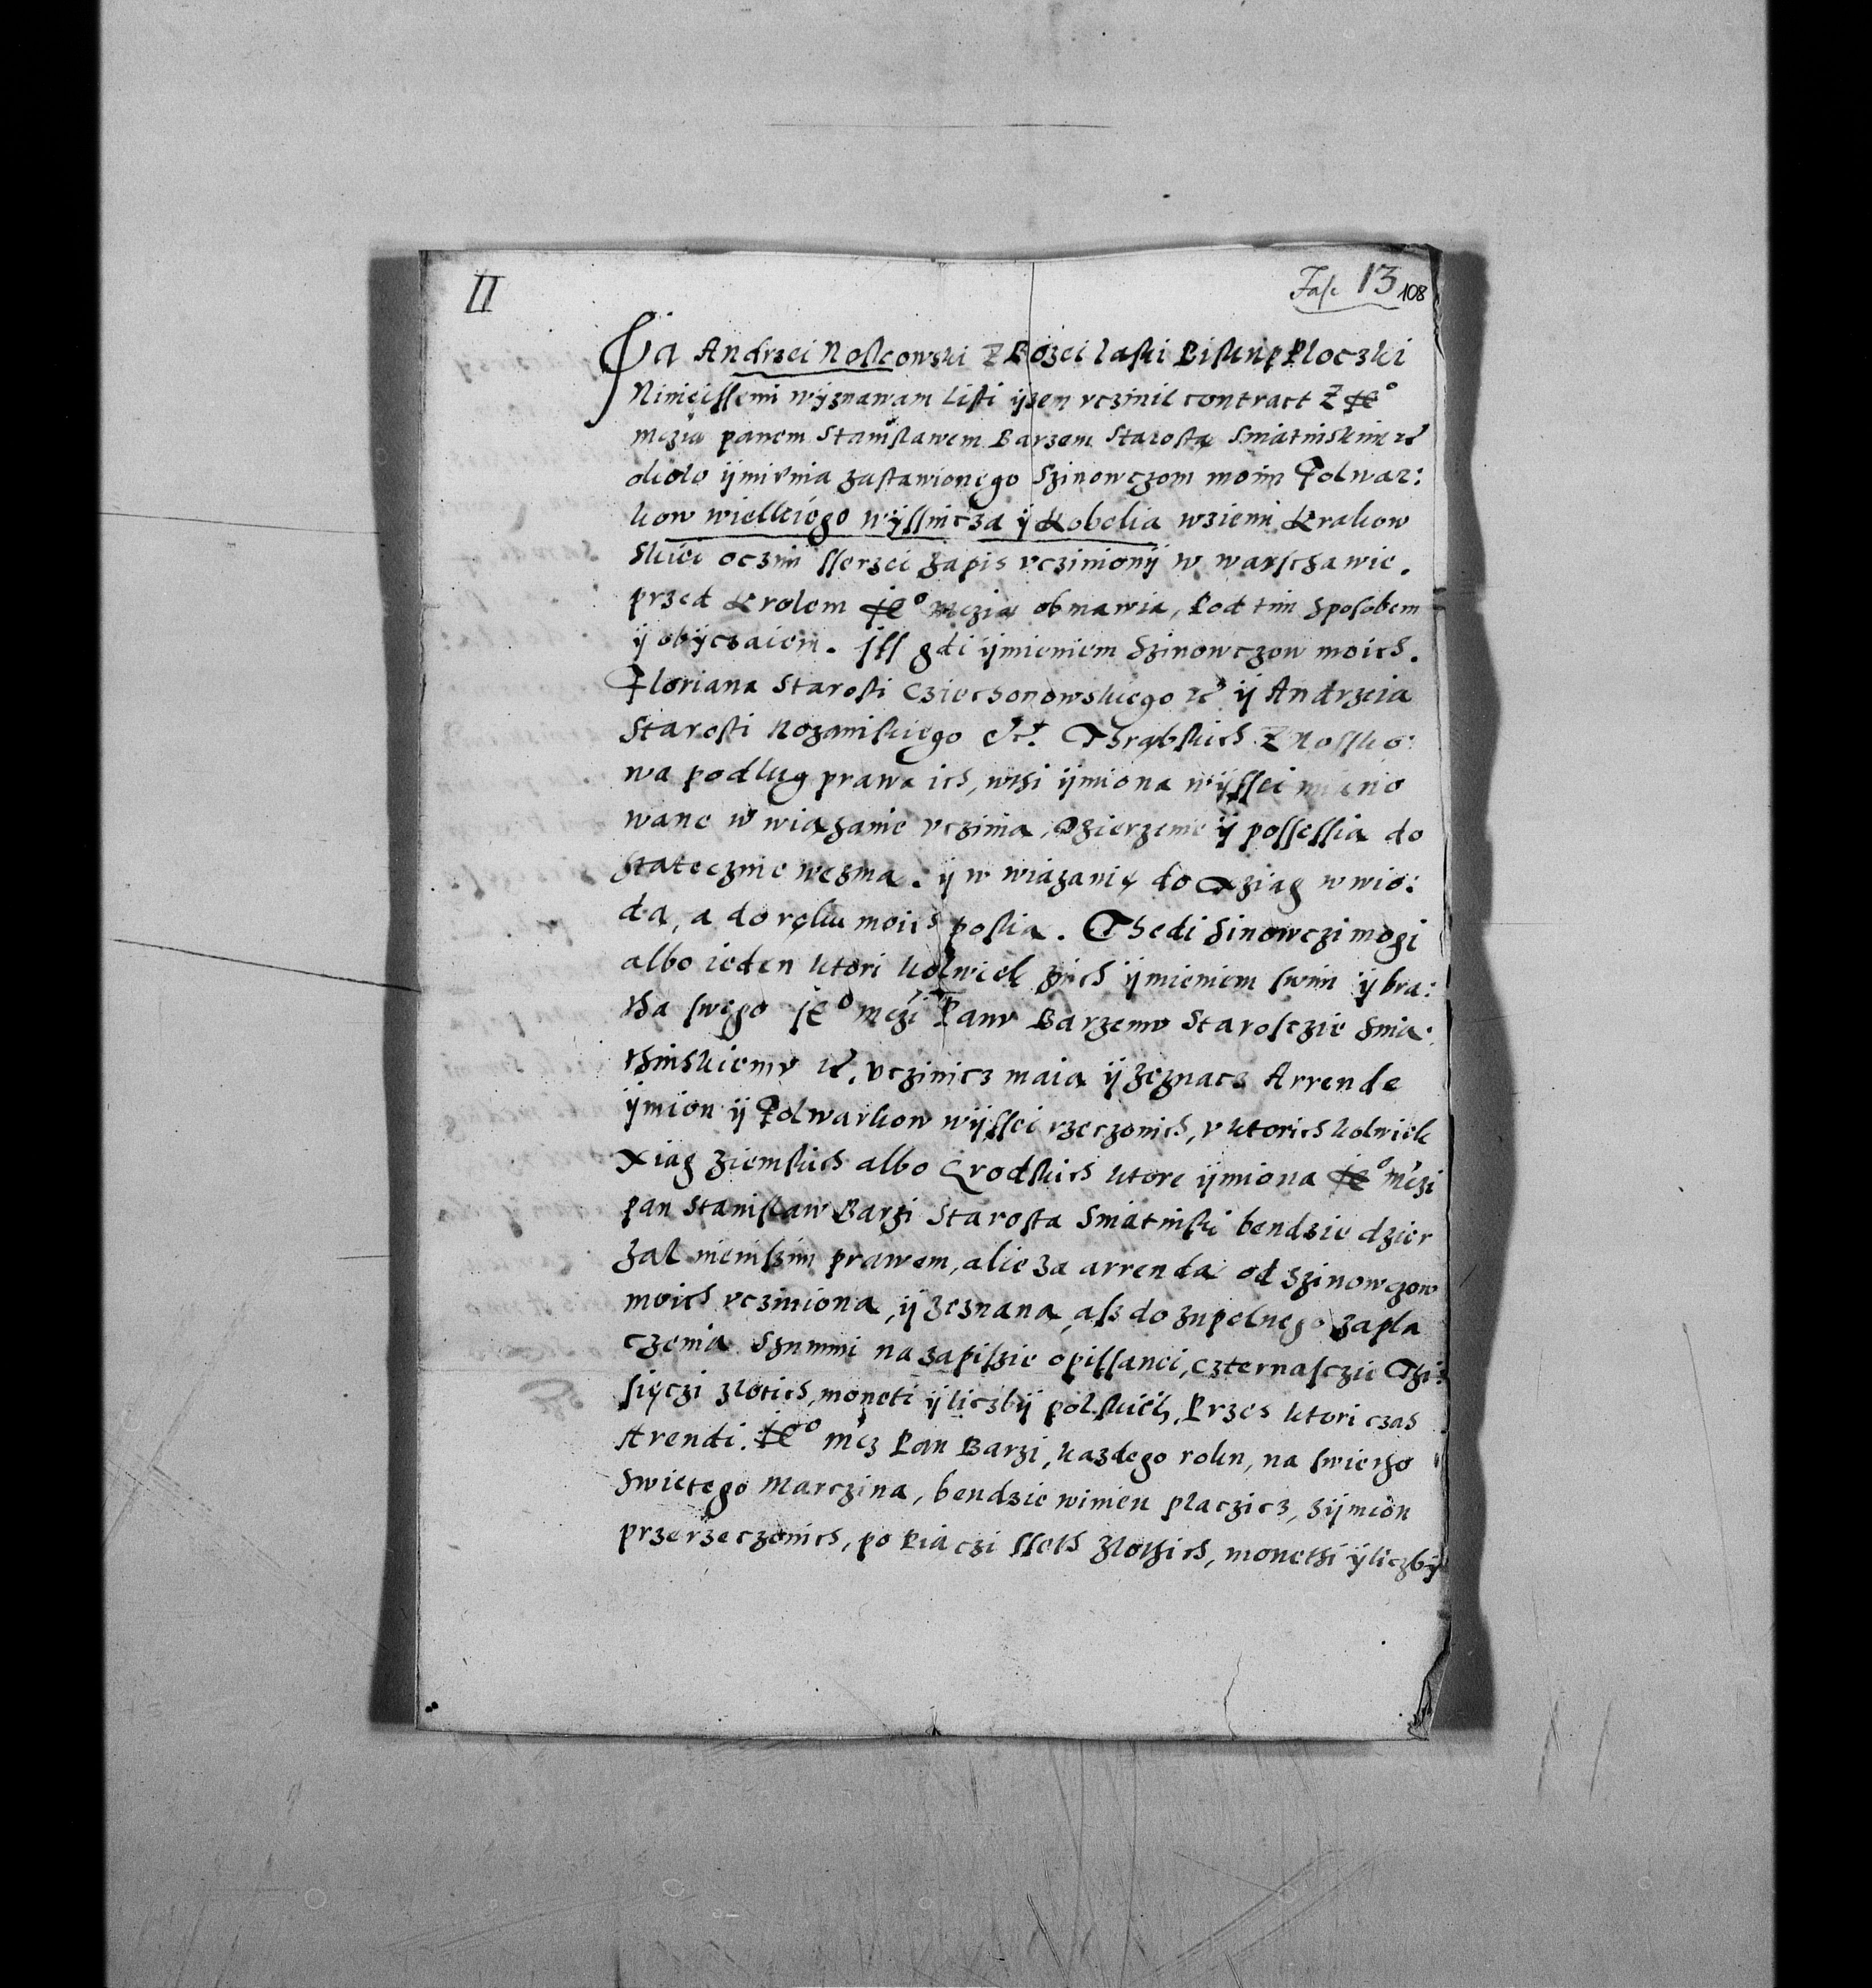 II
Fasc 13 108
Ja Andrzei Noskowski Z Bozei laski Biskup Ploczki
Nimieissemi wÿznawam listi ÿzem vczinil contract Z Je°
mczia panem Stanislawem Barzem Starosta Sniatinskim etc
okolo ÿmienia zastawionego Szinowczom moim Folwar:
kow wielkiego wÿssnicza ÿ Kobelia wziemi Krakow
skiei oczim sserzei zapis vczinionÿ w warschawie.
przed Krolem Je° mczia obmawia, Pod tim sposobem
ÿ obÿczaiem. Iss gdi ÿmieniem Szinowczow moich.
Floriana Starosti Cziechonowskiego etc ÿ Andrzeia
Starosti Rozanskiego etc. Thrąbskich Z Nossko:
wa podlug prawa ich, wthi ÿmiona wÿssei miano
wane w wiązanie vczinia, Dzierzenie ÿ possessia do
statecznie wezma. ÿ w wiązanię do Xziag wwio:
da, a do ręku moich poslia. Thedi Sinowczi mogi
albo ieden ktori kolwiek znich ÿmieniem swim ÿ bra:
tha swego Je° mczi Panv Barzemv Starosczie Snia:
thinskiemv etc. vczinicz maia ÿ zeznacz Arrende
ÿmion ÿ Folwarkow wÿssei rzeczonich, v ktorich kolwiek
Xiag ziemskich albo Grodskich ktore ÿmiona Je° mczi
pan Stanislaw Barzi Starosta Sniatinski bendzie dzier
zal nieinszim prawem, alie za arrenda od Szinowczow
moich vcziniona, ÿ zeznana, asz do zupelnego zapla
czenia Szummi na zapiszie opissanei, czternasczie Thi:
sięczi zlotich, moneti ÿ liczbÿ polskiéÿ, Przes ktori czas
Arendi. Je° mcz Pan Barzi, kazdego roku, na swietho
Swietego Marczina, bendzie winien placzicz, z ÿmion
przerzeczonich, po Piaczi sseth zlothich, monethi ÿ liczbÿ